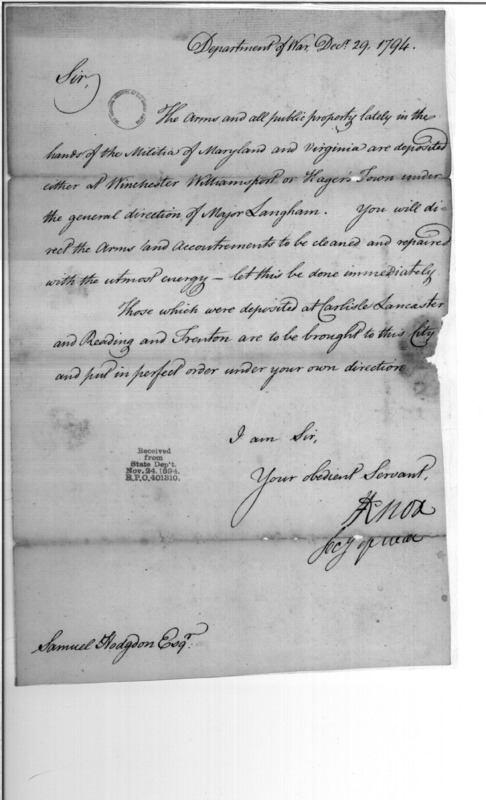 Department of War, Decr. 29. 1794.
Sir,
The Arms and all public property lately in the
hands of the Militia of Maryland and Virginia are deposited
either at Winchester Williamsport or Hager's Town under
the general direction of Major Langham. You will di-
rect the Arms and accoutrements to be cleaned and repaired
with the utmost energy — let this be done immediately.
Those which were deposited at Carlisle Lancaster
and Reading and Trenton are to be brought to this City
and put in perfect order under your own direction
I am Sir,
Your obedient Servant,
Received
from
State Dep't.
Nov. 24. 1894.
R.P.O. 401310.
HKnox
Secy of war
Samuel Hodgdon Esqr.